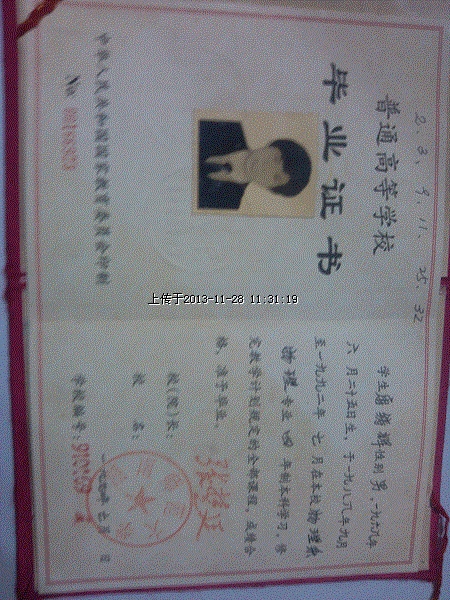 2. 3. 9. 11. 25. 32
普通高等学校
毕业证书
中华人民共和国国家教育委员会印制
No
上传于2013-11-28 11:31:19
学生 性别 男,一九六九年
六月二十五日生,于一九八 年九月
至一九九二年 七月在本校 物理系
物理 专业 四 年制本科学习,修
完教学计划规定的全部课程,成绩合
格,准予毕业。
校(院)长:
校 名:
学校编号: